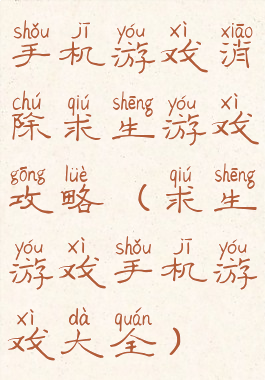 shǒu jī yóu xì xiāo
手机游戏消
chú qiú shēng yóu xì
除求生游戏
gōng lüè qiú shēng
攻略（求生
yóu xì shǒu jī yóu
游戏手机游
xì dà quán
戏大全）